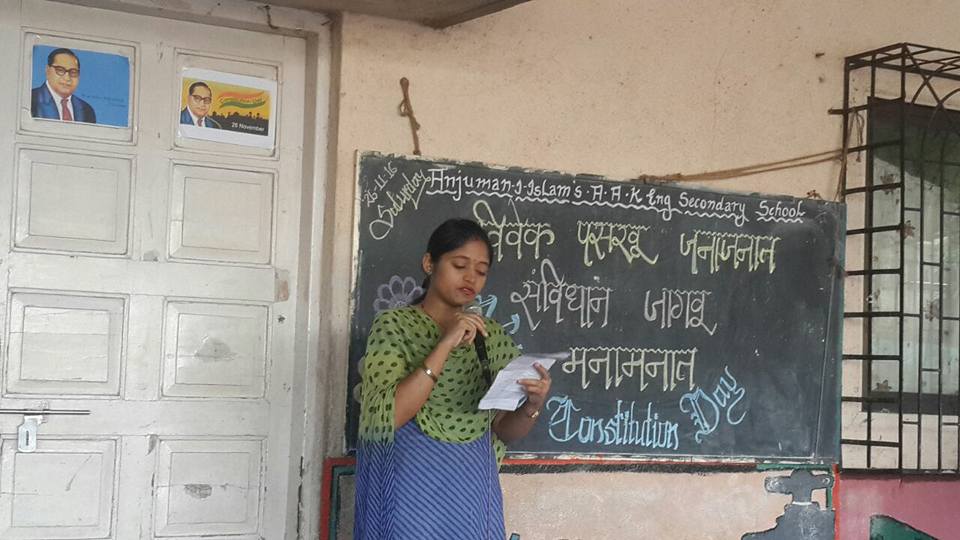 26 November
26-11-16
Saturday
Anjuman-I-Islam's A. A. K Eng Secondary School
विवेक पसरवू जनाजनात
संविधान जागवू
मनामनात
Constitution Day